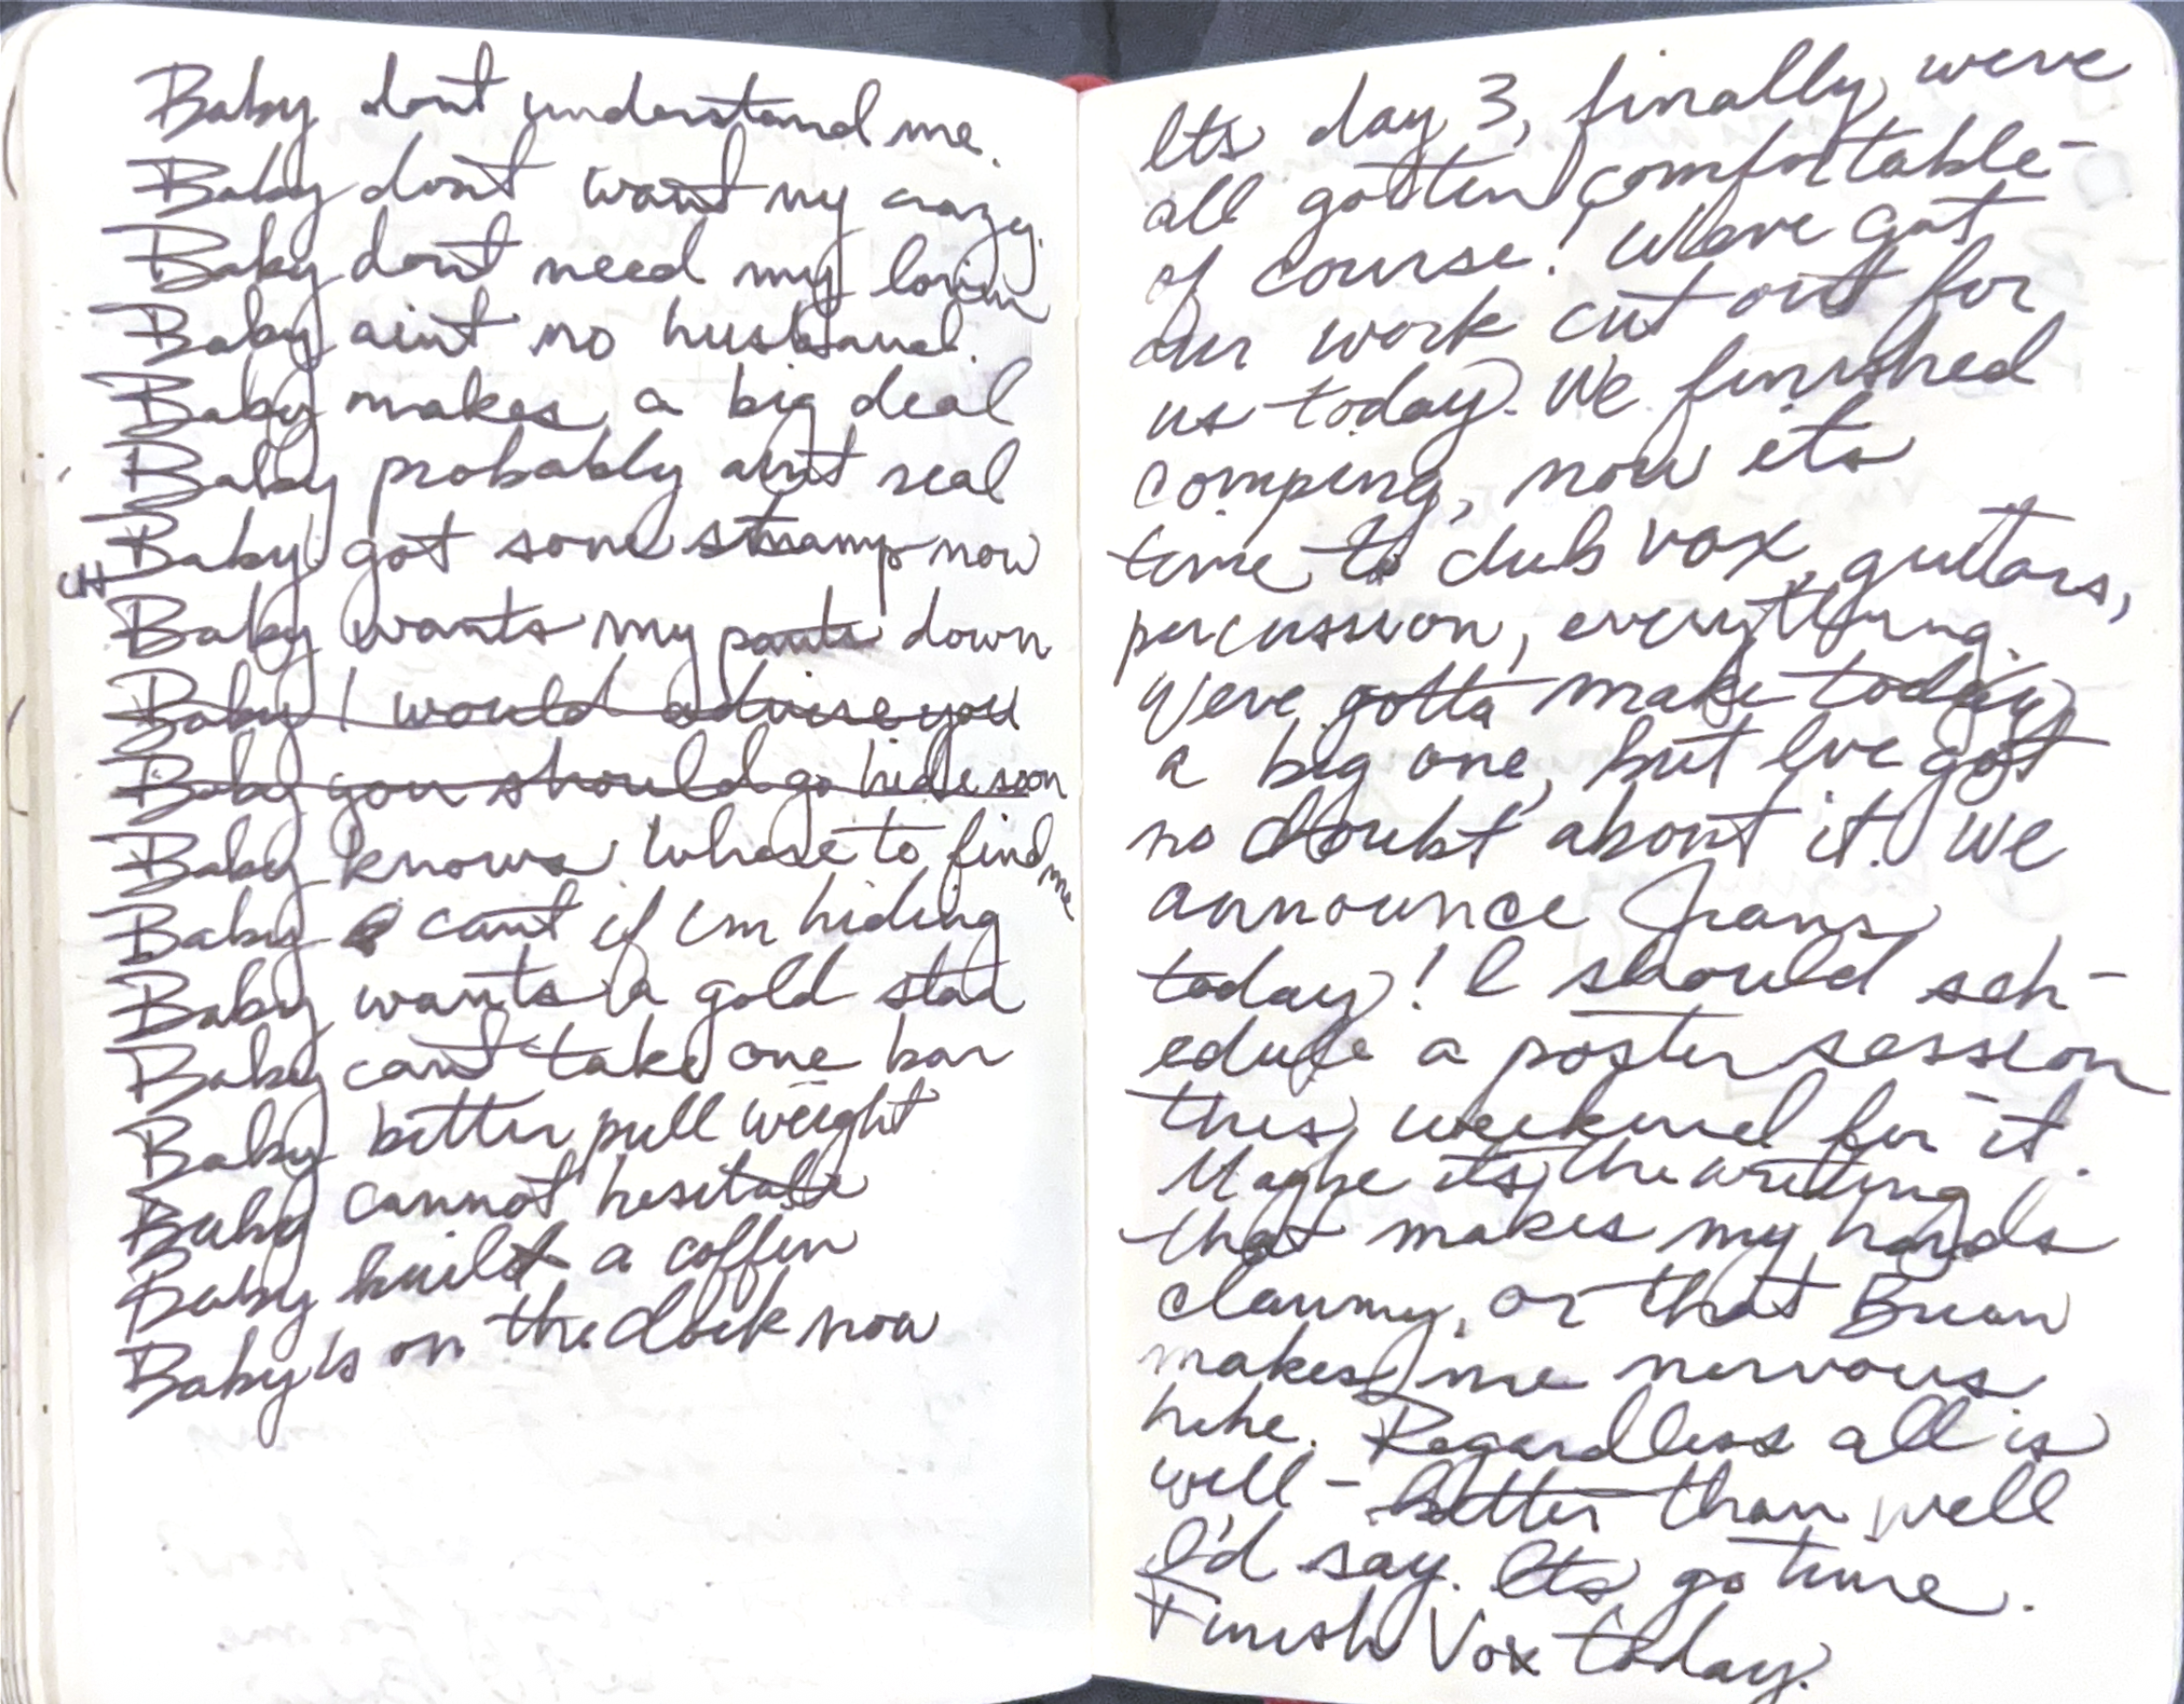 Baby dont understand me.
Baby dont want my crazy.
Baby dont need my lovin
Baby aint no husband.
Baby makes a big deal
Baby probably aint real
Baby got some now
Baby wants my pants down
Baby I would advise you
Baby you should go hide soon
Baby knows where to find me
Baby cant if im hiding
Baby wants a gold star
Baby cant take one bar
Baby better pull weight
Baby cannot hesitate
Baby built a coffin
Baby is on the clock now
Its day 3, finally weve
all gotten comfortable-
of course! Weve got
our work cut out for
us today. We finished
comping, now its
time to dub vox, guitars,
percussion, everything.
Weve gotta make today
a big one, but Ive got
no doubt about it. We
announce
today! I should sch-
edule a poster session
this weekend for it.
Maybe its the writing
that makes my hands
clammy, or that Brian
makes me nervous
hehe. Regardless all is
well - better than well
I'd say. Its go time.
Finish Vox today.